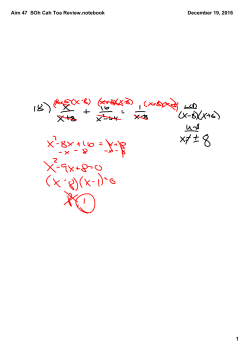 Aim 47 SOh Cah Toa Review.notebook December 19, 2016
18) x/(x+8) + 16/(x²-64) = 1/(x-8)
LCD
(x-8)(x+8)
und
x≠±8
x²-8x+16 = x+8
-x -8 -x-8
x²-9x+8=0
(x-8)(x-1)=0
8 1
1